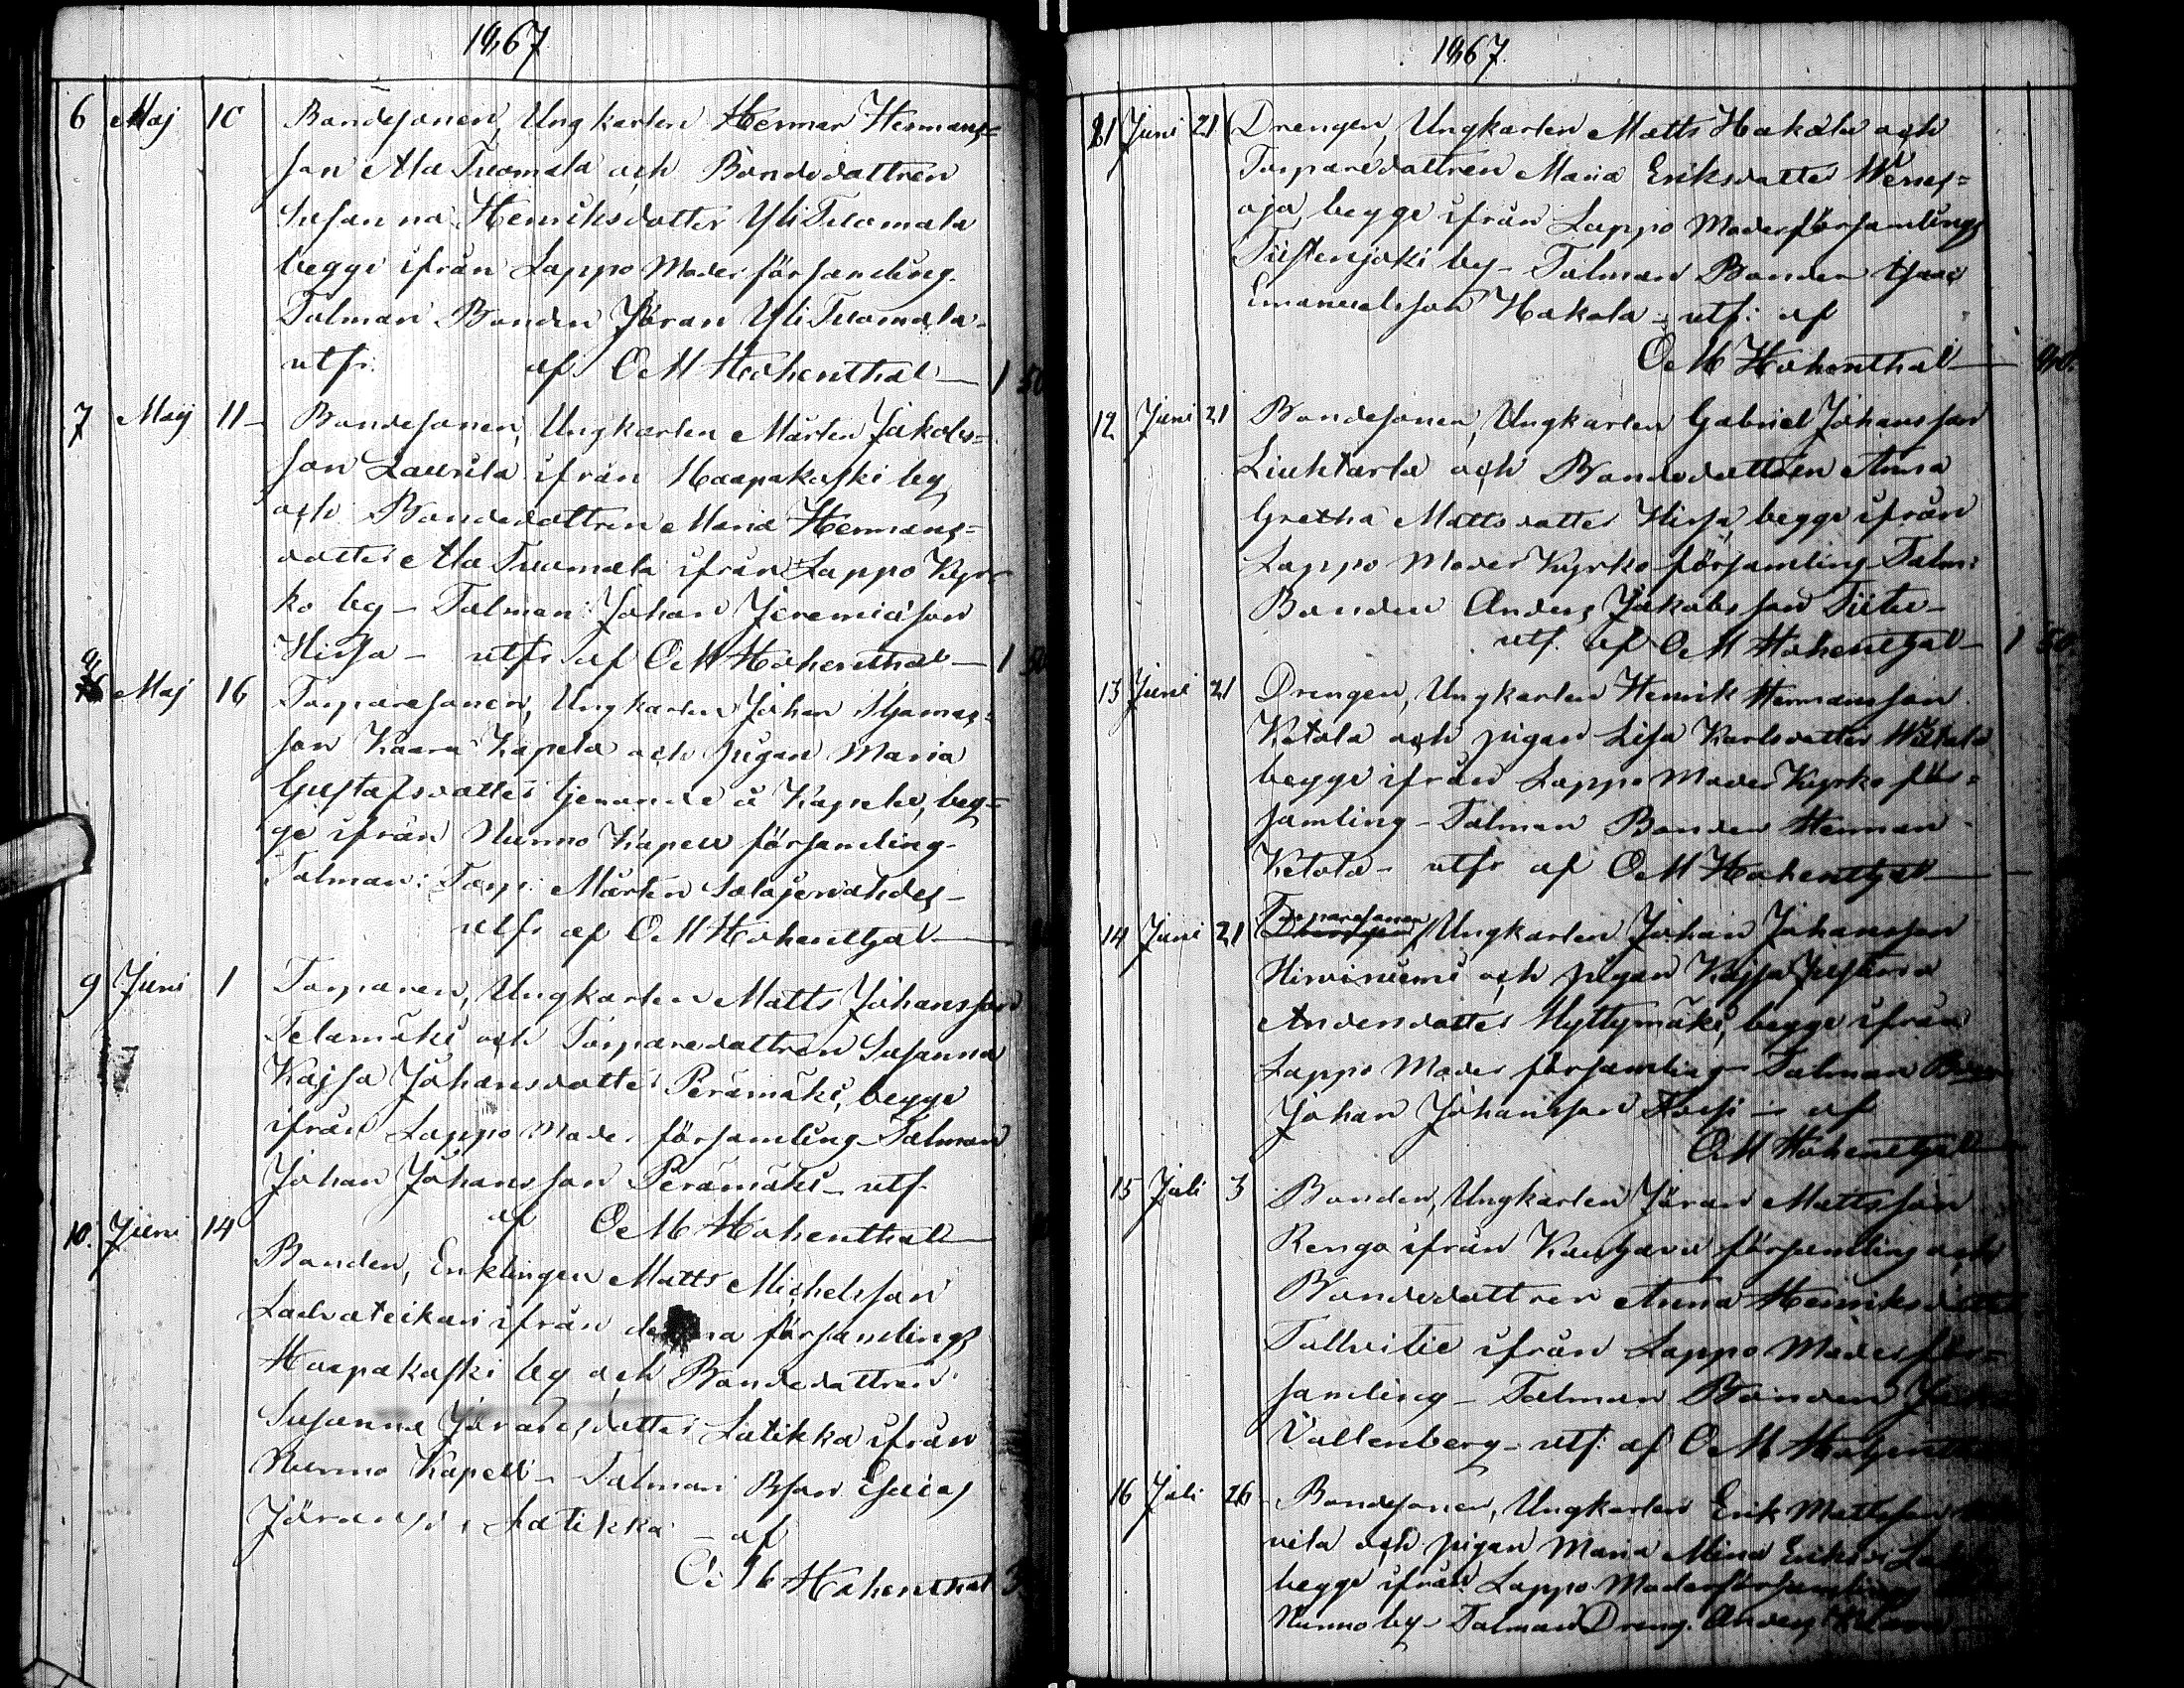 1867
6 Maj 10 Bondesonen, Ungkarlen Herman Hermans=
son Ala Tuomala och Bondedottren
Susanna Henriksdotter Yli Tuomala
begge ifrån Lappo Moder församling.
Talman Bonden Jöran Yli Tuomala-
utfr. af O M Hohenthal — 1 50
7 Maij 11 - Bondesonen, Ungkarlen Mårten Jakobs=
son Laurila ifrån Haapakoski by
och Bondedottren Maria Hermans=
dotter Ala Tuomala ifrån Lappo Kyr
ko by - Talman: Johan Jeremiäson
Hirsa - utfr af O M Hohenthal — 1 50
Maj 16 Torparesonen, Ungkarlen Johan
son Kaara Kapela och pigan Maria
Gustafsdotter tjenande å Kapela, beg=
ge ifrån Nurmo Kapell församling-
Talman: Torp. Mårten
utfr af O M Hohenthal —
9 Juni 1 Torparen, Ungkarlen Matts Johansson
Telamäki och Torparedottren Susanna
Kajsa Johansdotter Perämäki, begge
ifrån Lappo Moder församling Talman
Johan Johansson Perämäki - utf.
af O M Hohenthal —
10. Juni 14 Bonden, Enklingen Matts Michelsson
ifrån denna församlings
Haapakoski by och Bondedottren
Susanna Jöransdotter Latikka ifrån
Nurmo Kapell - Talman Bson Esaias
Latikka - af
O M Hohenthal 3
1867.
11 Juni 21 Drengen, Ungkarlen Matts Hakola och
Torparedottren Maria Eriksdotter
oja, begge ifrån Lappo Moderförsamlings
Tiistenjoki by - Talman Bonden Isaac
Emanuelsson Hakola - utf: af
O M Hohenthal —
12 Juni 21 Bondesonen, Ungkarlen Gabriel Johansson
Liuhtarla och Bondedottren Anna
Gretha Mattsdotter Hirsa, begge ifrån
Lappo Moder Kyrko församling Talm:
Bonden Anders Jakobsson
utf. af O M Hohenthal - 1 50.
13 Juni 21 Drengen, Ungkarlen Henrik Hermansson
Ketola och pigan Lisa Karlsdotter
begge ifrån Lappo Moder Kyrko för=
samling - Talman Bonden Herman
Ketola - utfr af O M Hohenthal —
Torparesonen
14 Juni 21 Ungkarlen Johan Johansson
Hirviniemi och pigan Kajsa Justina
Andersdotter Hyttymäki, begge ifrån
Lappo Moder församling - Talman
Johan Johansson - af
O M Hohenthal
15 Juli 3 Bonden, Ungkarlen Jöran Mattsson
Rengo ifrån Kauhava församling och
Bondedottren Anna Henriksdotter
ifrån Lappo Moder för=
samling - Talman Bonden
Vallenberg - utf. af O M Hohenthal
16 Juli 26 Bondesonen, Ungkarlen Erik Mattsson
vila och pigan Maria Mina Eriksd
begge ifrån Lappo Moderförsamlings
Nurmo by - Talman Dreng. Anders